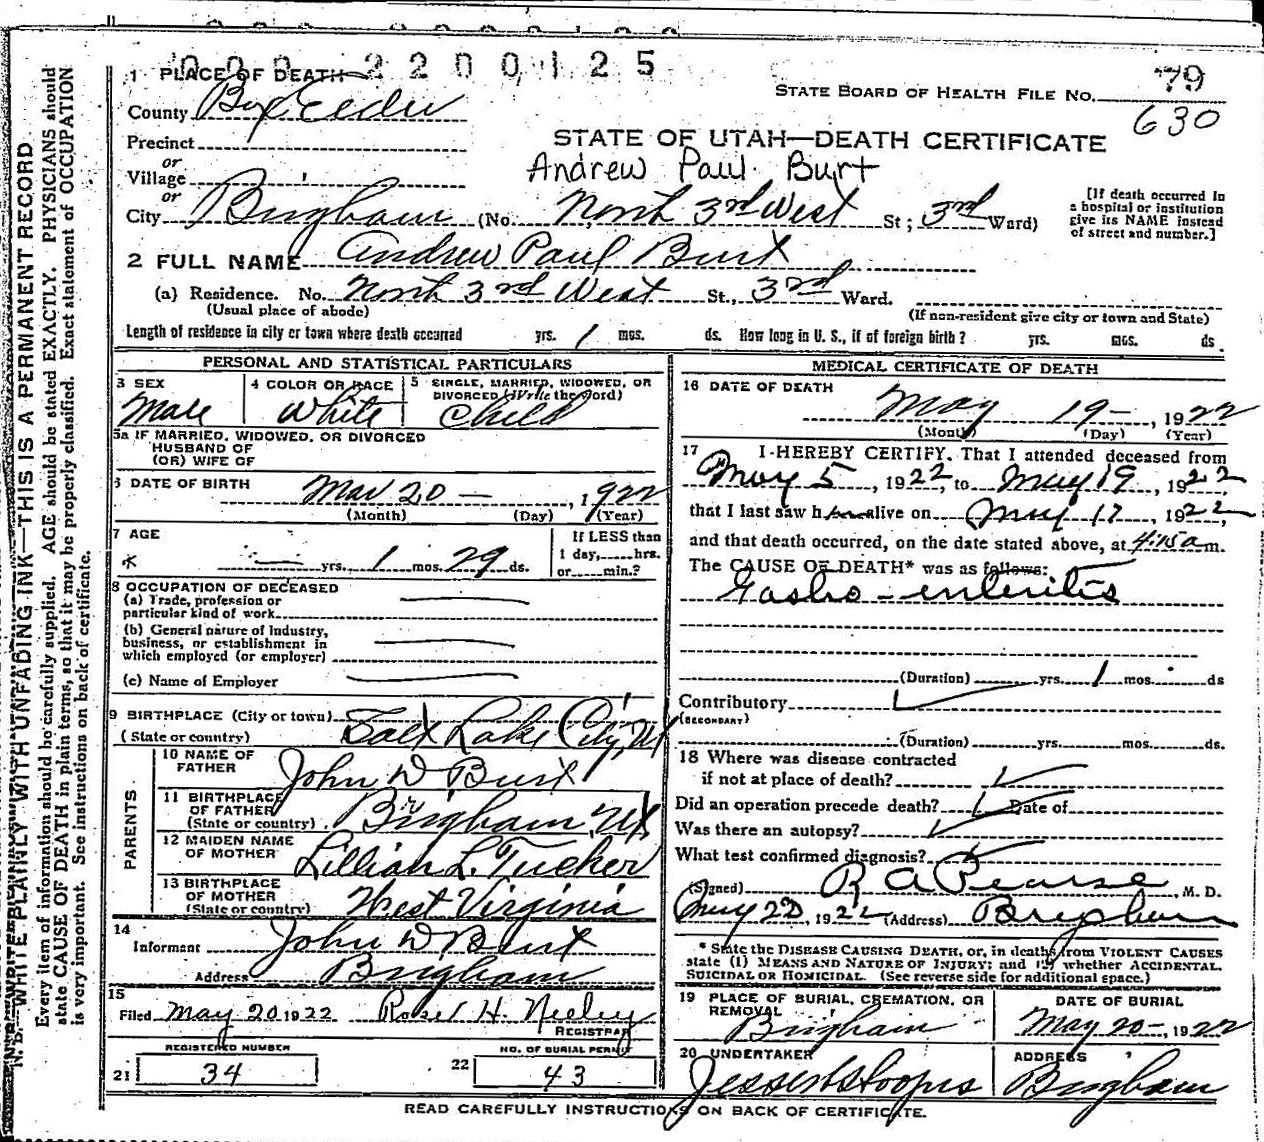 2200125
1 PLACE OF DEATH
County Box Elder
STATE BOARD OF HEALTH FILE NO. 79
630
Precinct
or
Village
or
STATE OF UTAH—DEATH CERTIFICATE
Andrew Paul Burt
City Brigham (No. North 3rd West St; 3rd Ward)
[If death occurred in a hospital or institution give its NAME instead of street and number.]
2 FULL NAME Andrew Paul Burt
(a) Residence. No. North 3rd West St., 3rd Ward.
(Usual place of abode) (If non-resident give city or town and State)
Length of residence in city or town where death occurred yrs. 1 mos. ds. How long in U. S., if of foreign birth? yrs. mos. ds.
PERSONAL AND STATISTICAL PARTICULARS
3 SEX Male
4 COLOR OR RACE White
5 SINGLE, MARRIED, WIDOWED, OR DIVORCED (Write the word) Child
5a IF MARRIED, WIDOWED, OR DIVORCED
HUSBAND OF
(OR) WIFE OF
6 DATE OF BIRTH Mar 20 — , 1922
(Month) (Day) (Year)
7 AGE
— yrs. 1 mos. 29 ds.
If LESS than
1 day, hrs.
or min.?
8 OCCUPATION OF DECEASED
(a) Trade, profession or
particular kind of work
(b) General nature of Industry,
business, or establishment in
which employed (or employer)
(c) Name of Employer
9 BIRTHPLACE (City or town) Salt Lake City, Ut
(State or country)
PARENTS
10 NAME OF
FATHER John D Burt
11 BIRTHPLACE
OF FATHER
(State or country) Brigham Ut
12 MAIDEN NAME
OF MOTHER Lillian L. Tucker
13 BIRTHPLACE
OF MOTHER
(State or country) West Virginia
14
Informant John D Burt
Address Brigham
15
Filed May 20 1922 H. Neeley
REGISTRAR
REGISTERED NUMBER
21 34
NO. OF BURIAL PERMIT
22 43
MEDICAL CERTIFICATE OF DEATH
16 DATE OF DEATH
May 19- , 1922
(Month) (Day) (Year)
17 I HEREBY CERTIFY, That I attended deceased from
May 5, 1922, to May 19, 1922,
that I last saw h alive on May 17, 1922,
and that death occurred, on the date stated above, at 4:15 a m.
The CAUSE OF DEATH* was as follows:
Gastro-enteritis
(Duration) yrs. 1 mos. ds
Contributory
(SECONDARY)
(Duration) yrs. mos. ds.
18 Where was disease contracted
if not at place of death?
Did an operation precede death? Date of
Was there an autopsy?
What test confirmed diagnosis?
(Signed) R A Pearse, M. D.
May 22, 1922 (Address) Brigham
* State the DISEASE CAUSING DEATH, or, in deaths from VIOLENT CAUSES
state (1) MEANS AND NATURE OF INJURY; and (2) whether ACCIDENTAL,
SUICIDAL OR HOMICIDAL. (See reverse side for additional space.)
19 PLACE OF BURIAL, CREMATION, OR
REMOVAL
Brigham
DATE OF BURIAL
May 20-, 1922
20 UNDERTAKER
ADDRESS
Brigham
READ CAREFULLY INSTRUCTIONS ON BACK OF CERTIFICATE.
N. B.—WRITE PLAINLY WITH UNFADING INK—THIS IS A PERMANENT RECORD
Every item of information should be carefully supplied. AGE should be stated EXACTLY. PHYSICIANS should
state CAUSE OF DEATH in plain terms, so that it may be properly classified. Exact statement of OCCUPATION
is very important. See instructions on back of certificate.